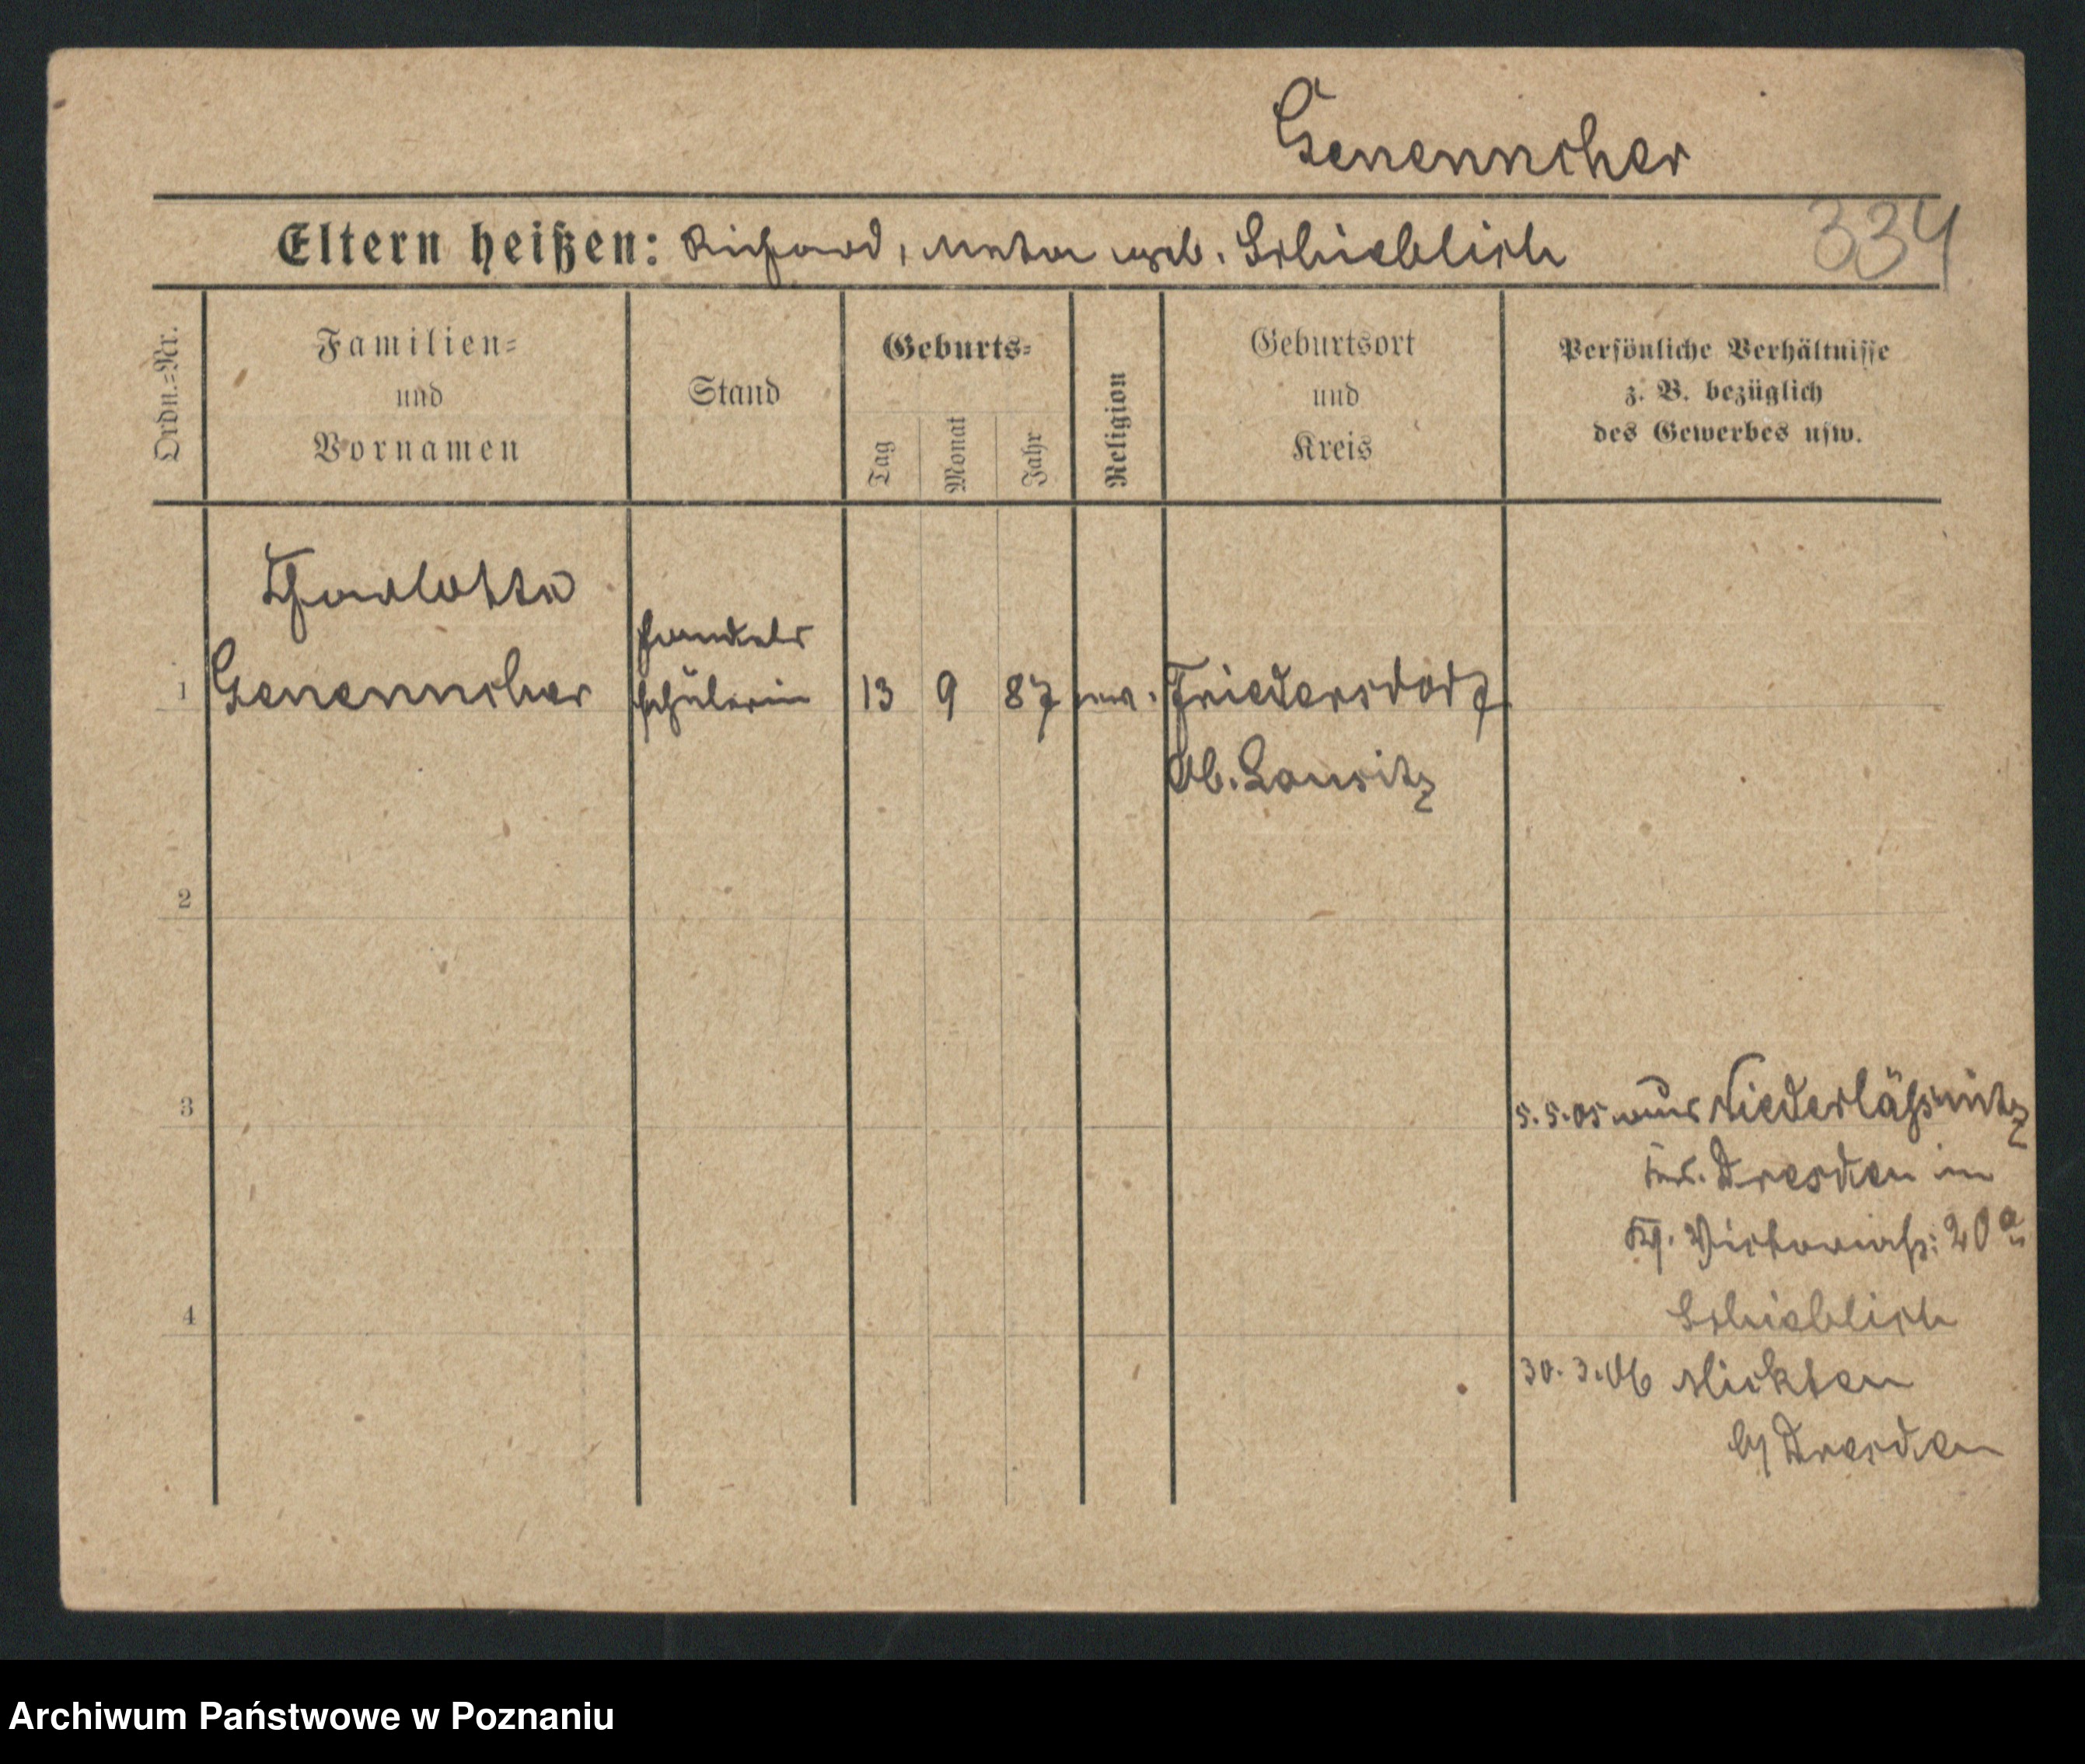 Genenncher
Eltern heißen: Richard, Meta geb. Schieblich
334
Ordn.=Nr.
Familien=
und
Vornamen
Stand
Geburts=
Tag
Monat
Jahr
Religion
Geburtsort
und
Kreis
Persönliche Verhältnisse
z. B. bezüglich
des Gewerbes usw.
Charlotte
Genenncher
Handels
schülerin
1
13 9 87 ev. Friedersdorf
Ob. Lausitz
2
3
5.5.05 aus Niederlößnitz
Krs. Dresden in
Kg. Victoriastr: 20a
Schieblich
4
30.3.06 Mickten
b/ Dresden
Archiwum Państwowe w Poznaniu